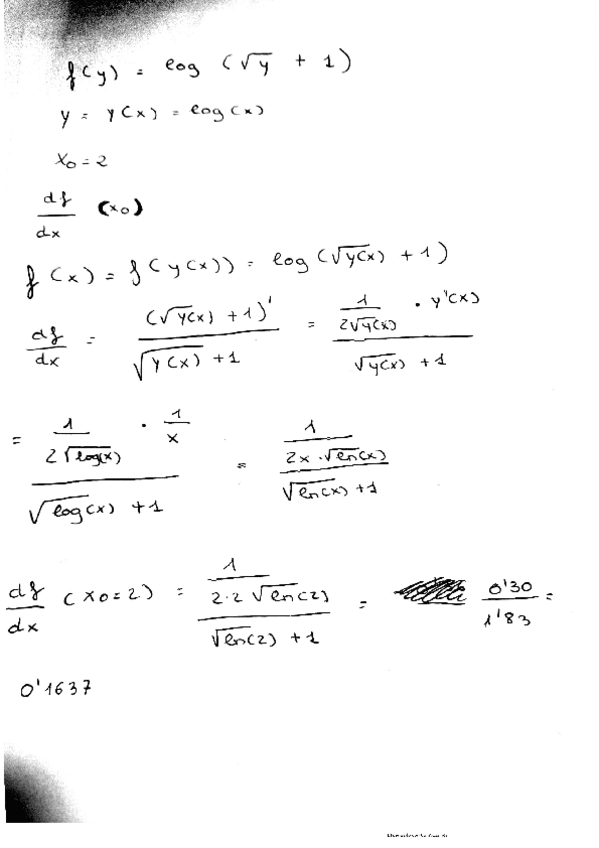 f(y) = log (√y + 1)
y = y(x) = log(x)
x₀ = 2
df/dx (x₀)
f(x) = f(y(x)) = log (√y(x) + 1)
df/dx = (√y(x) + 1)' / (√y(x) + 1) = (1/(2√y(x)) · y'(x)) / (√y(x) + 1)
= (1/(2√log(x)) · 1/x) / (√log(x) + 1) = (1/(2x · √ln(x))) / (√ln(x) + 1)
df/dx (x₀=2) = (1/(2·2 √ln(2))) / (√ln(2) + 1) = 0'30/1'83 =
0'1637